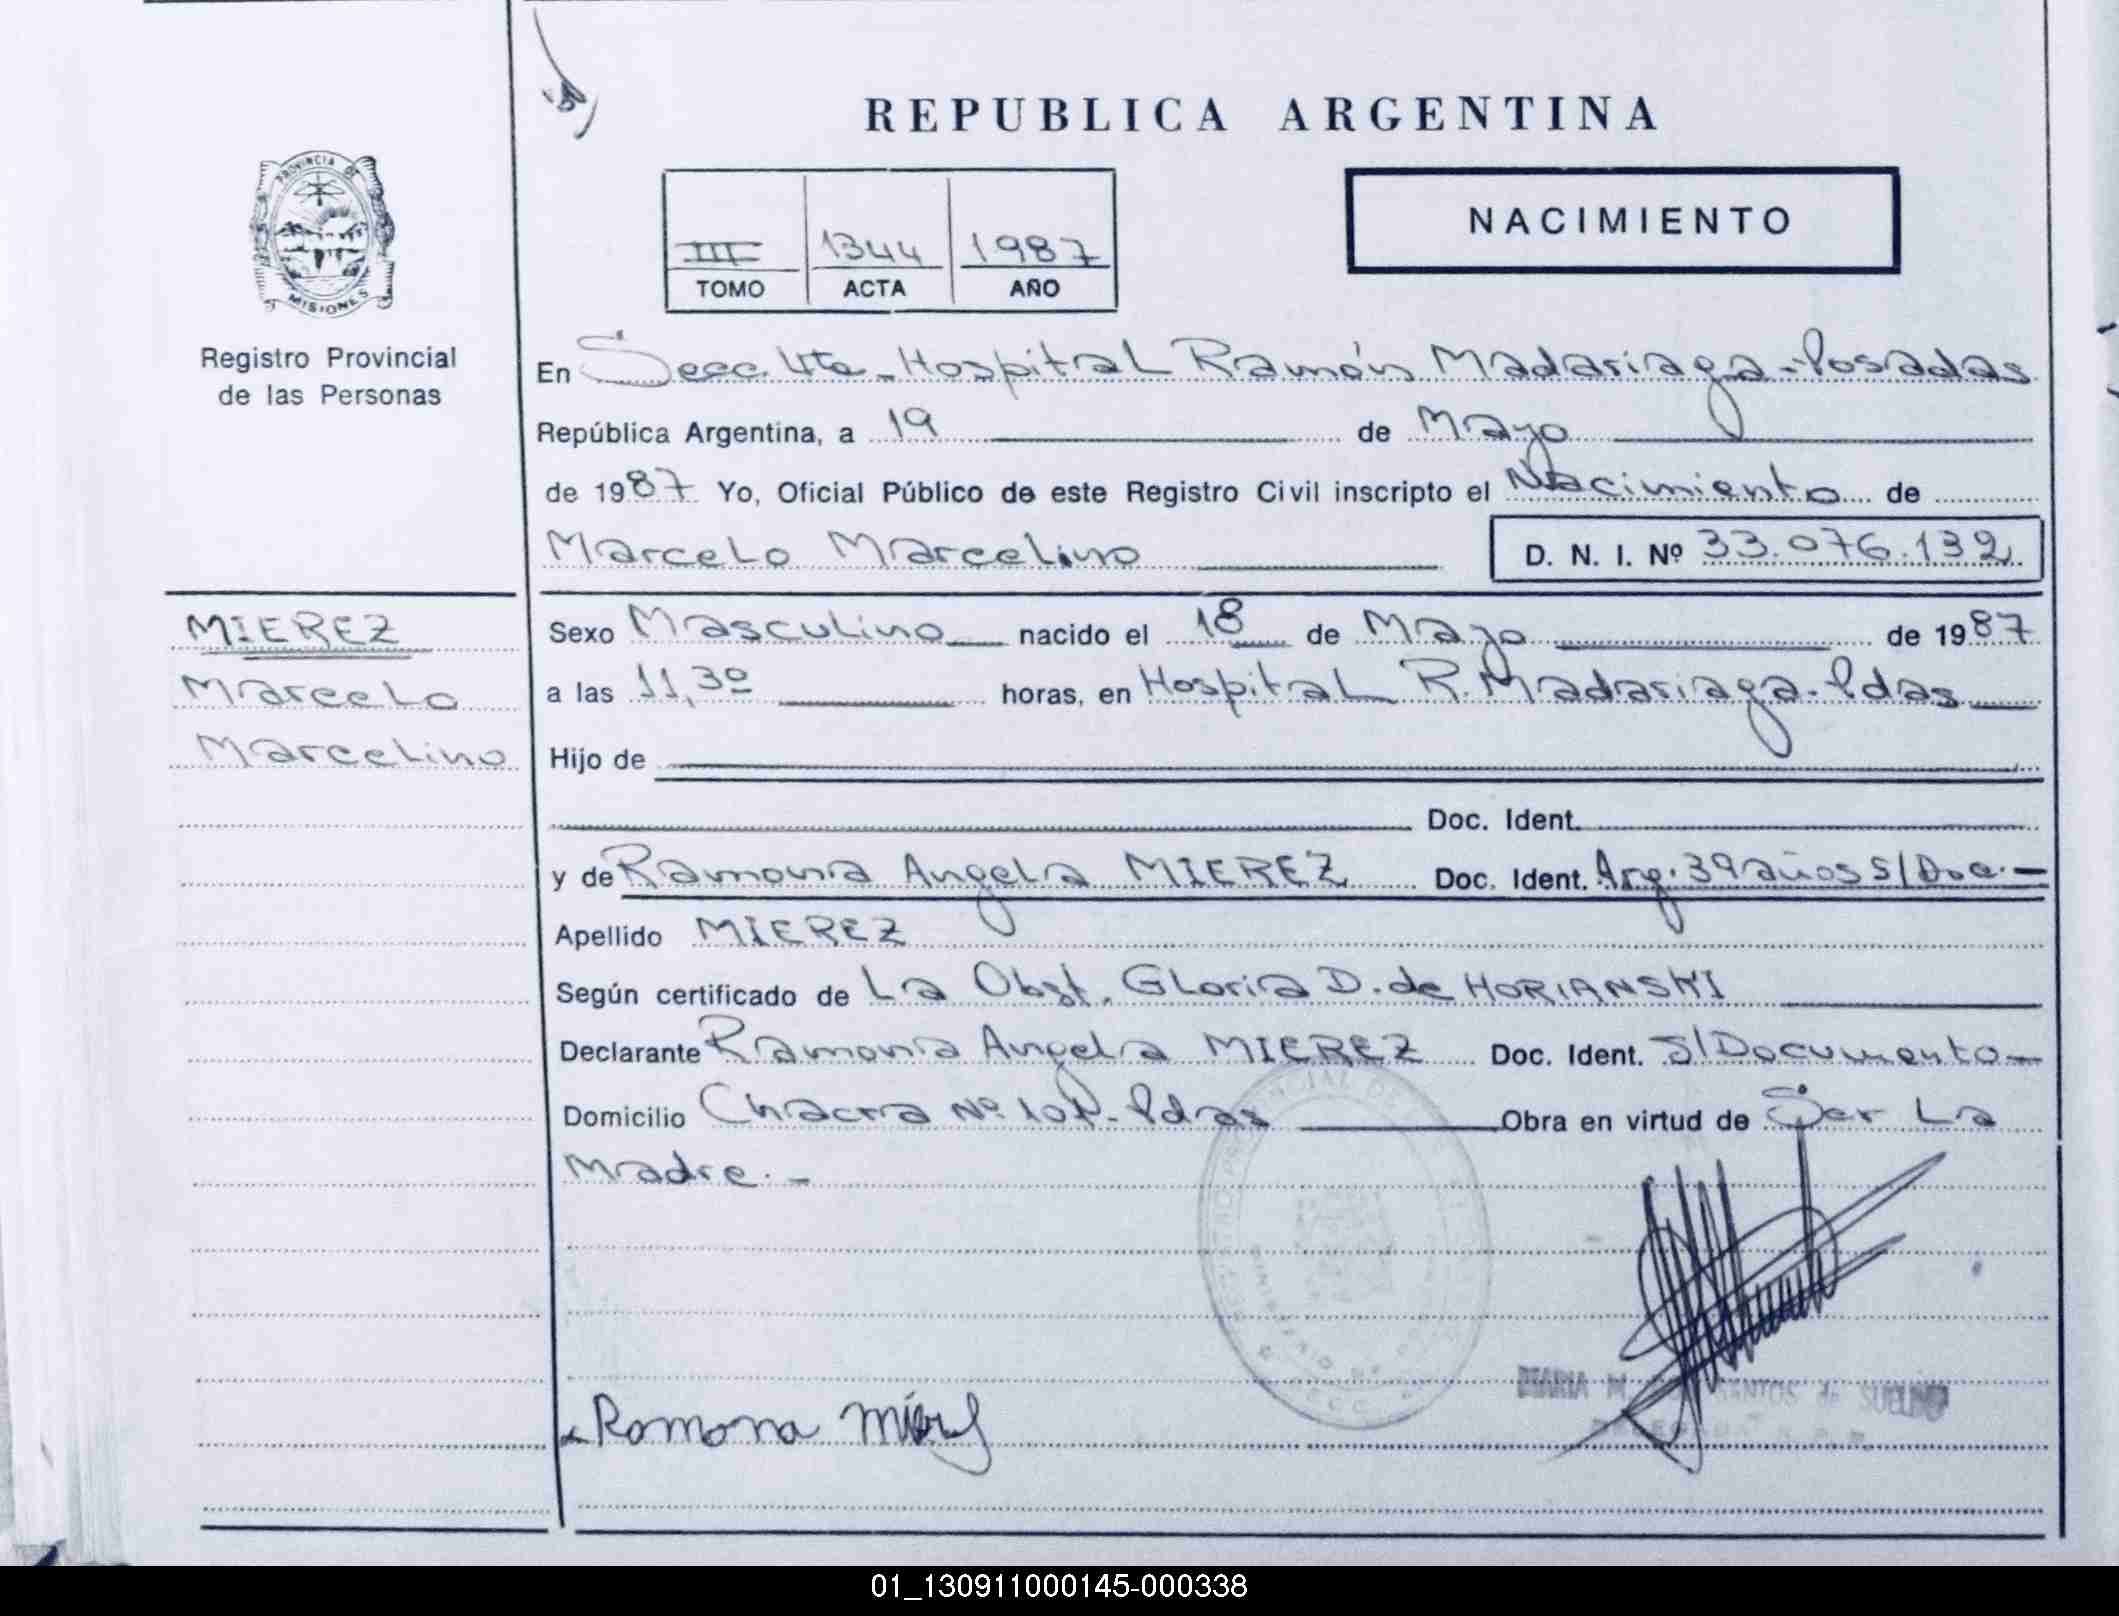 REPUBLICA ARGENTINA
PROVINCIA DE MISIONES
Registro Provincial
de las Personas
III 1344 1987
TOMO ACTA AÑO
NACIMIENTO
En Secc. 4ta - Hospital Ramón Madariaga - Posadas
República Argentina, a 19 de Mayo
de 1987 Yo, Oficial Público de este Registro Civil inscripto el Nacimiento de
Marcelo Marcelino D. N. I. Nº 33.076.132
MIEREZ
Marcelo
Marcelino
Sexo Masculino nacido el 18 de Mayo de 1987
a las 11,30 horas, en Hospital R. Madariaga - Pdas
Hijo de
Doc. Ident.
y de Ramona Angela MIEREZ Doc. Ident. Arg. 39 años S/Doc. -
Apellido MIEREZ
Según certificado de La Obst. Gloria D. de HORIANSKI
Declarante Ramona Angela MIEREZ Doc. Ident. S/Documento
Domicilio Chacra Nº - Pdas Obra en virtud de Ser La
Madre. -
Ramona
MARIA M. de
01_130911000145-000338